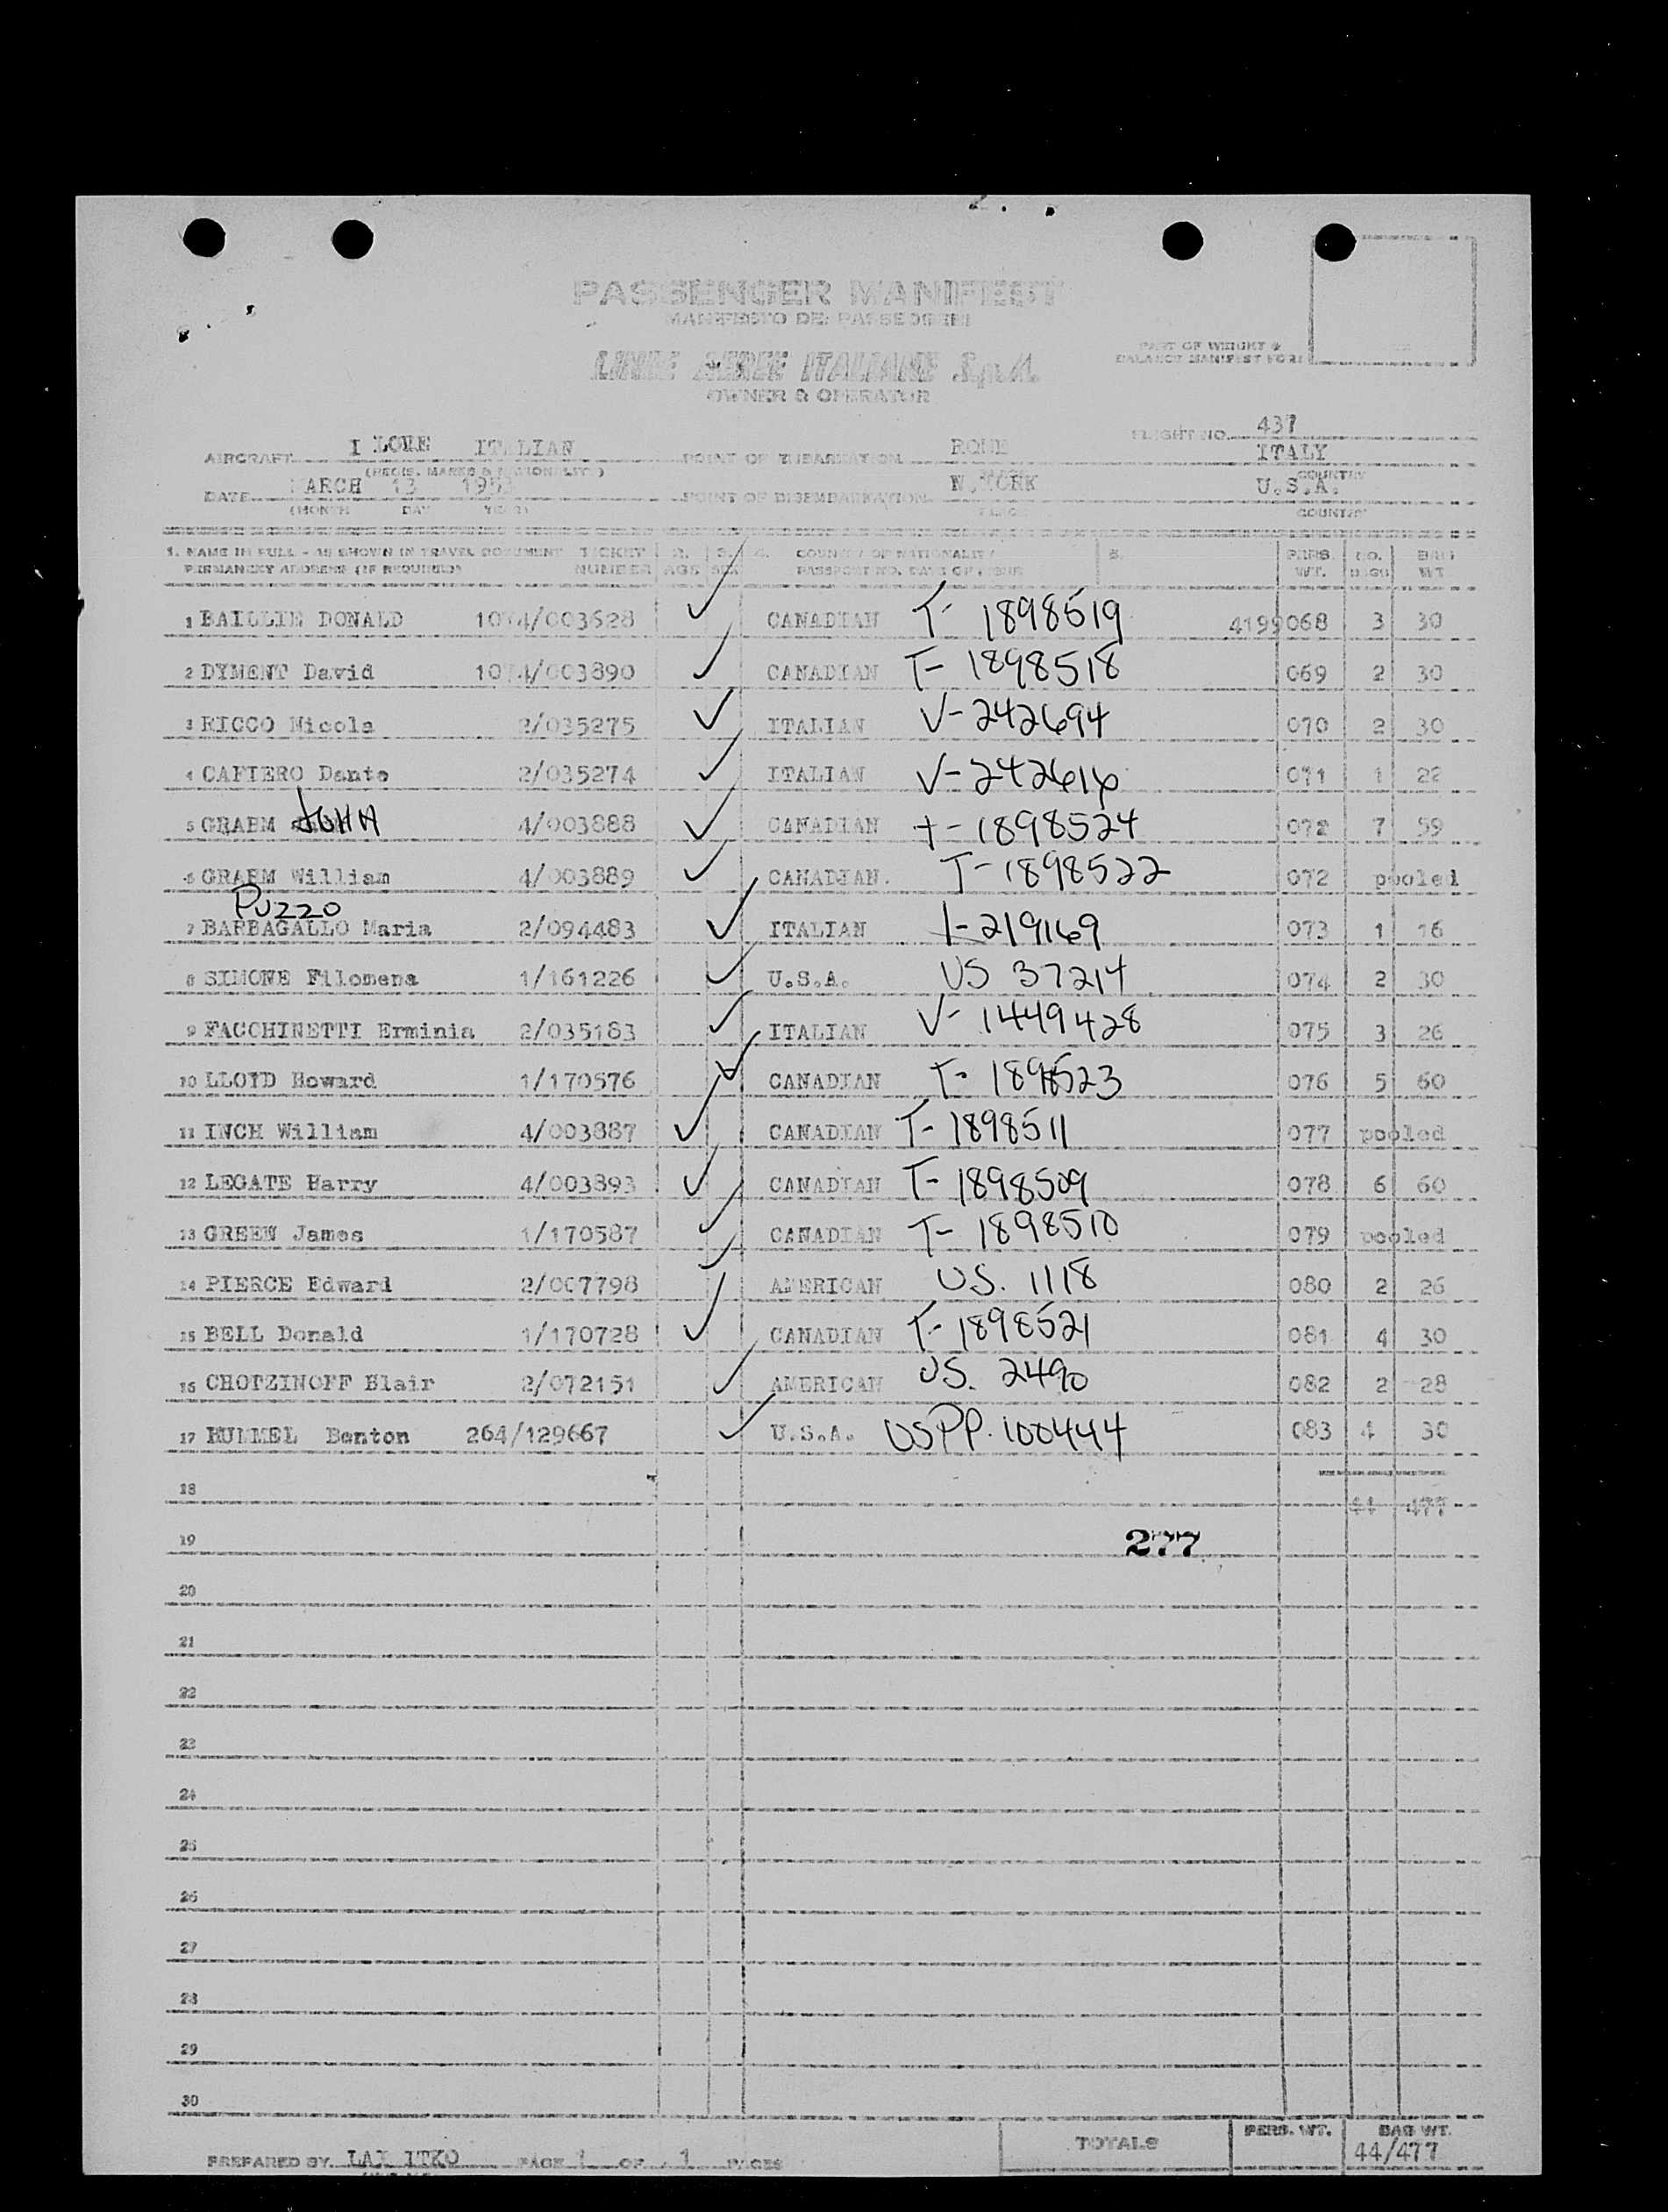 PASSENGER MANIFEST
MANIFESTO DEI PASSEGGERI
LINEE AEREE ITALIANE S.p.A.
OWNER & OPERATOR
PART OF WEIGHT &
BALANCE MANIFEST FOR:
FLIGHT NO. 437
AIRCRAFT I LOVE ITALIAN POINT OF EMBARKATION ROME ITALY
(REGIS. MARKS & NATIONALITY) COUNTRY
DATE MARCH 13 1953 POINT OF DISEMBARKATION N.YORK U.S.A.
(MONTH DAY YEAR) PLACE COUNTRY
1. NAME IN FULL - AS SHOWN IN TRAVEL DOCUMENT TICKET 2. 3. 4. COUNTRY OF NATIONALITY 5. PERS. NO. BAG
PERMANENT ADDRESS (IF REQUIRED) NUMBER AGE SEX PASSPORT NO. WT. BAGG WT
1 BAILLIE DONALD 1074/003628 CANADIAN T- 1898519 4199068 3 30
2 DYMENT David 1074/003890 CANADIAN T- 1898518 069 2 30
3 RICCO Nicola 2/035275 ITALIAN V-242694 070 2 30
4 CAFIERO Dante 2/035274 ITALIAN V-242616 071 1 22
5 GRAEM JOHN 4/003888 CANADIAN T-1898524 072 7 59
6 GRAEM William 4/003889 CANADIAN. T-1898522 072 pooled
PUZZO
7 BARBAGALLO Maria 2/094483 ITALIAN 1-219169 073 1 16
8 SIMONE Filomena 1/161226 U.S.A. US 37214 074 2 30
9 FACCHINETTI Erminia 2/035183 ITALIAN V- 1449428 075 3 26
10 LLOYD Howard 1/170576 CANADIAN T- 1898523 076 5 60
11 INCH William 4/003887 CANADIAN T- 1898511 077 pooled
12 LEGATE Harry 4/003893 CANADIAN T- 1898509 078 6 60
13 GREEN James 1/170587 CANADIAN T- 1898510 079 pooled
14 PIERCE Edward 2/007798 AMERICAN US. 1118 080 2 26
15 BELL Donald 1/170728 CANADIAN T-1898521 081 4 30
16 CHOTZINOFF Blair 2/072151 AMERICAN US. 2490 082 2 28
17 RUMMEL Benton 264/129667 U.S.A. USPP. 100444 083 4 30
18 44 477
19 277
20
21
22
23
24
25
26
27
28
29
30
TOTALS PERS. WT. BAG WT.
44/477
PREPARED BY LAI ITKO PAGE 1 OF 1 PAGES